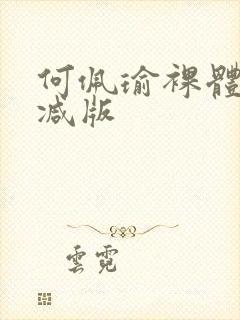 何佩瑜裸體
减版
雲霓